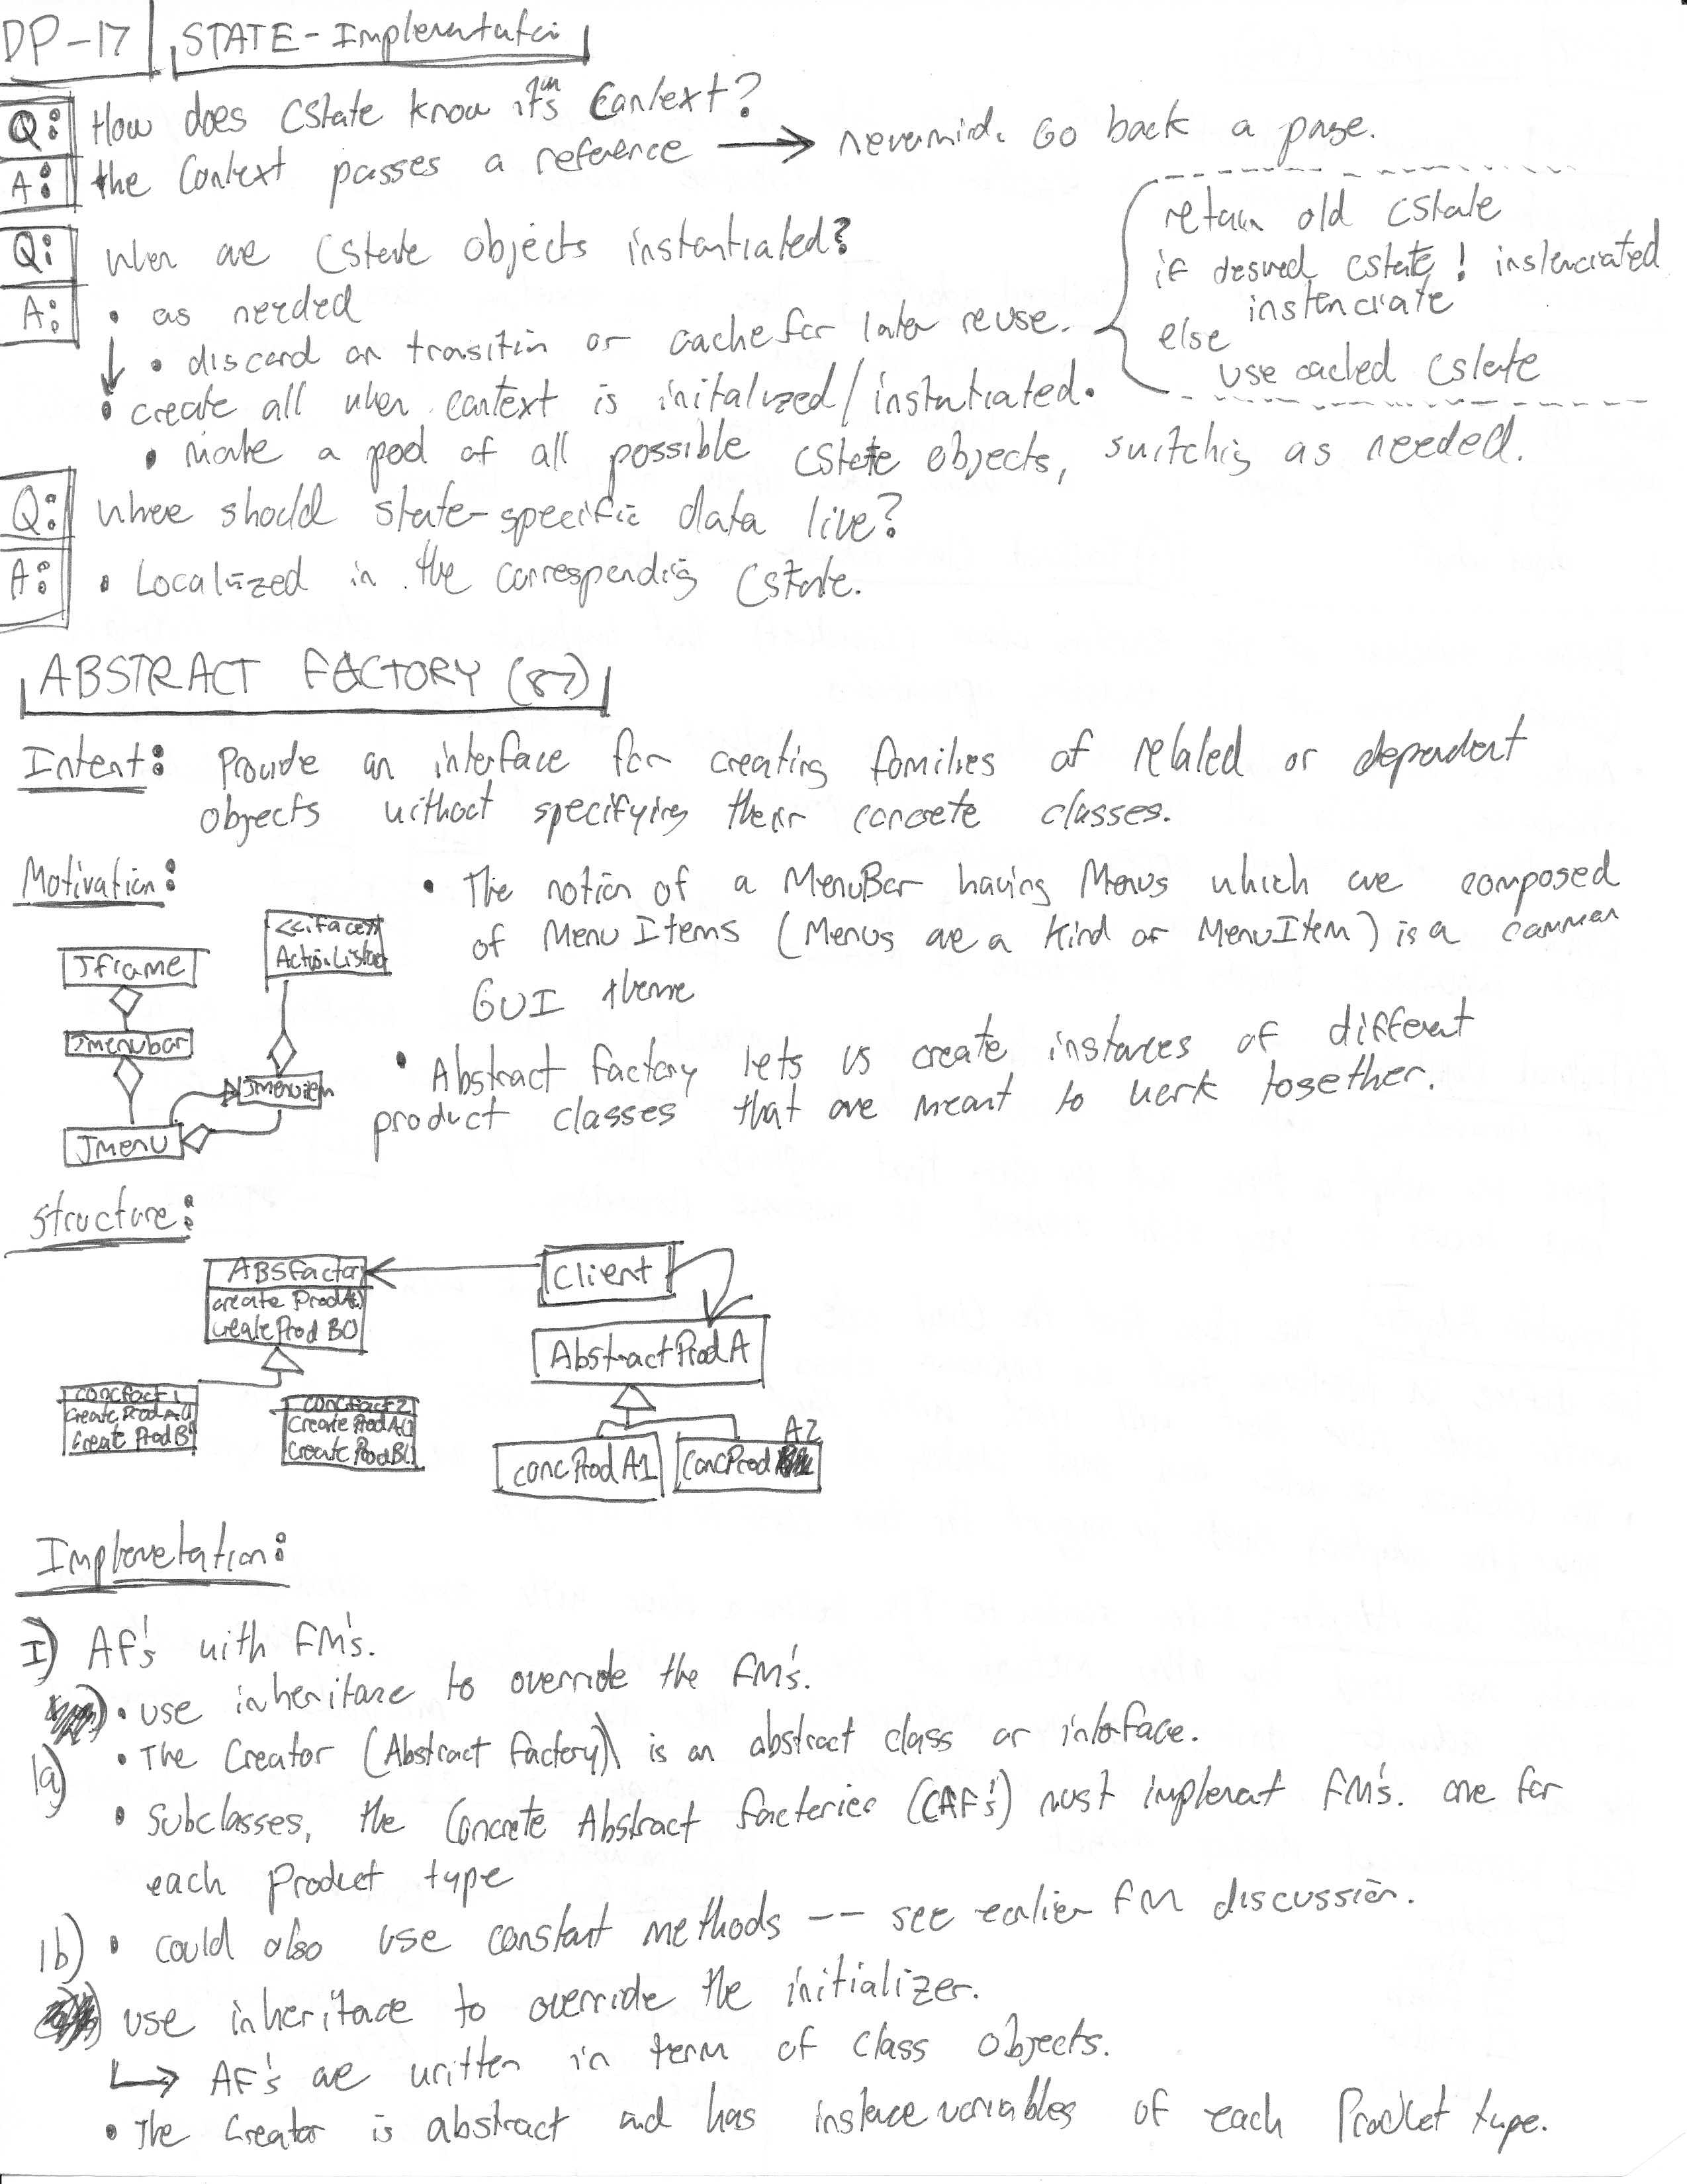 DP-17 STATE - Implementatin
Q: How does CState know it's Context?
A: the Context passes a reference → nevermind. Go back a page.
Q: when are CState objects instantiated?
A: • as needed
• discard on transition or cache for later reuse.
retain old CState
if desired CState ! instenciated
instenciate
else
use cached CState
• create all when context is initalized/instantiated.
• make a pool of all possible CState objects, switching as needed.
Q: where should state-specific data live?
A: • Localized in the corresponding CState.
ABSTRACT FACTORY (87)
Intent: Provide an interface for creating families of related or dependent
objects without specifying their concrete classes.
Motivation:
• The notion of a MenuBar having Menus which are composed
of Menu Items (Menus are a kind of MenuItem) is a common
GUI theme
• Abstract factory lets us create instances of different
product classes that are meant to work together.
<<iface>>
JFrame
Jmenubar
Jmenuitem
Jmenu
Structure:
ABSFactor
create ProdA()
create Prod B()
Client
AbstractProdA
concfact1
Create ProdA()
Create ProdB
concfact2
Create ProdA()
Create ProdB()
concProdA1
concProd A2
Implemetation:
I) AF's with FM's.
• use inheritance to override the FM's.
1a) • The Creator (Abstract Factory) is an abstract class or interface.
• Subclasses, the Concrete Abstract Factories (CAF's) must implement FM's. one for
each Product type
1b) • could also use constant methods -- see earlier FM discussion.
use inheritace to override the initializer.
↳ AF's are written in term of class objects.
• The Creator is abstract and has instance variables of each Product type.